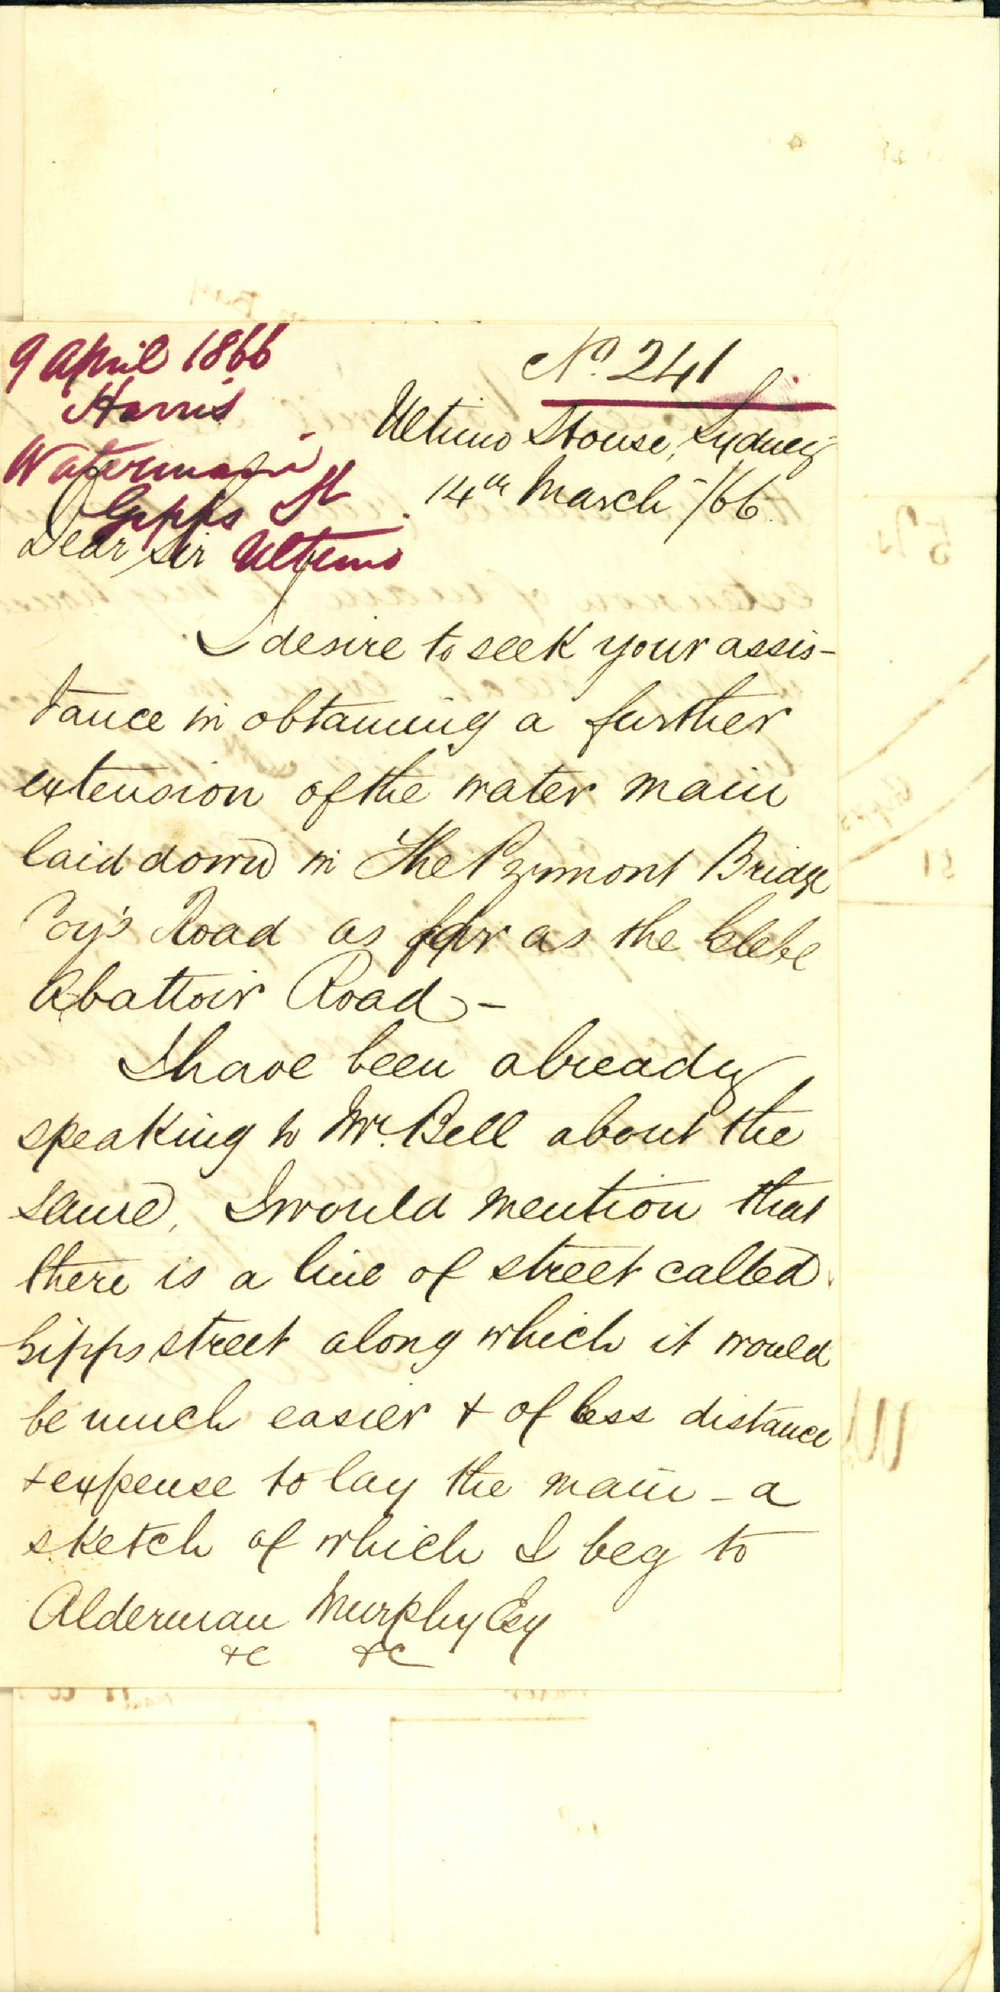 9 April 1866
Harris
Watermain
Gipps St
Ultimo
No. 241
Ultimo House, Sydney
14th March /66
Dear Sir
I desire to seek your assis-
tance in obtaining a further
extension of the water main
laid down in the Pyrmont Bridge
Coy's Road as far as the Glebe
Abattoir Road -
I have been already
speaking to Mr. Bell about the
same, I would mention that
there is a line of street called
Gipps street along which it would
be much easier & of less distance
& expense to lay the main - a
sketch of which I beg to
Alderman Murphy Esq
&c &c